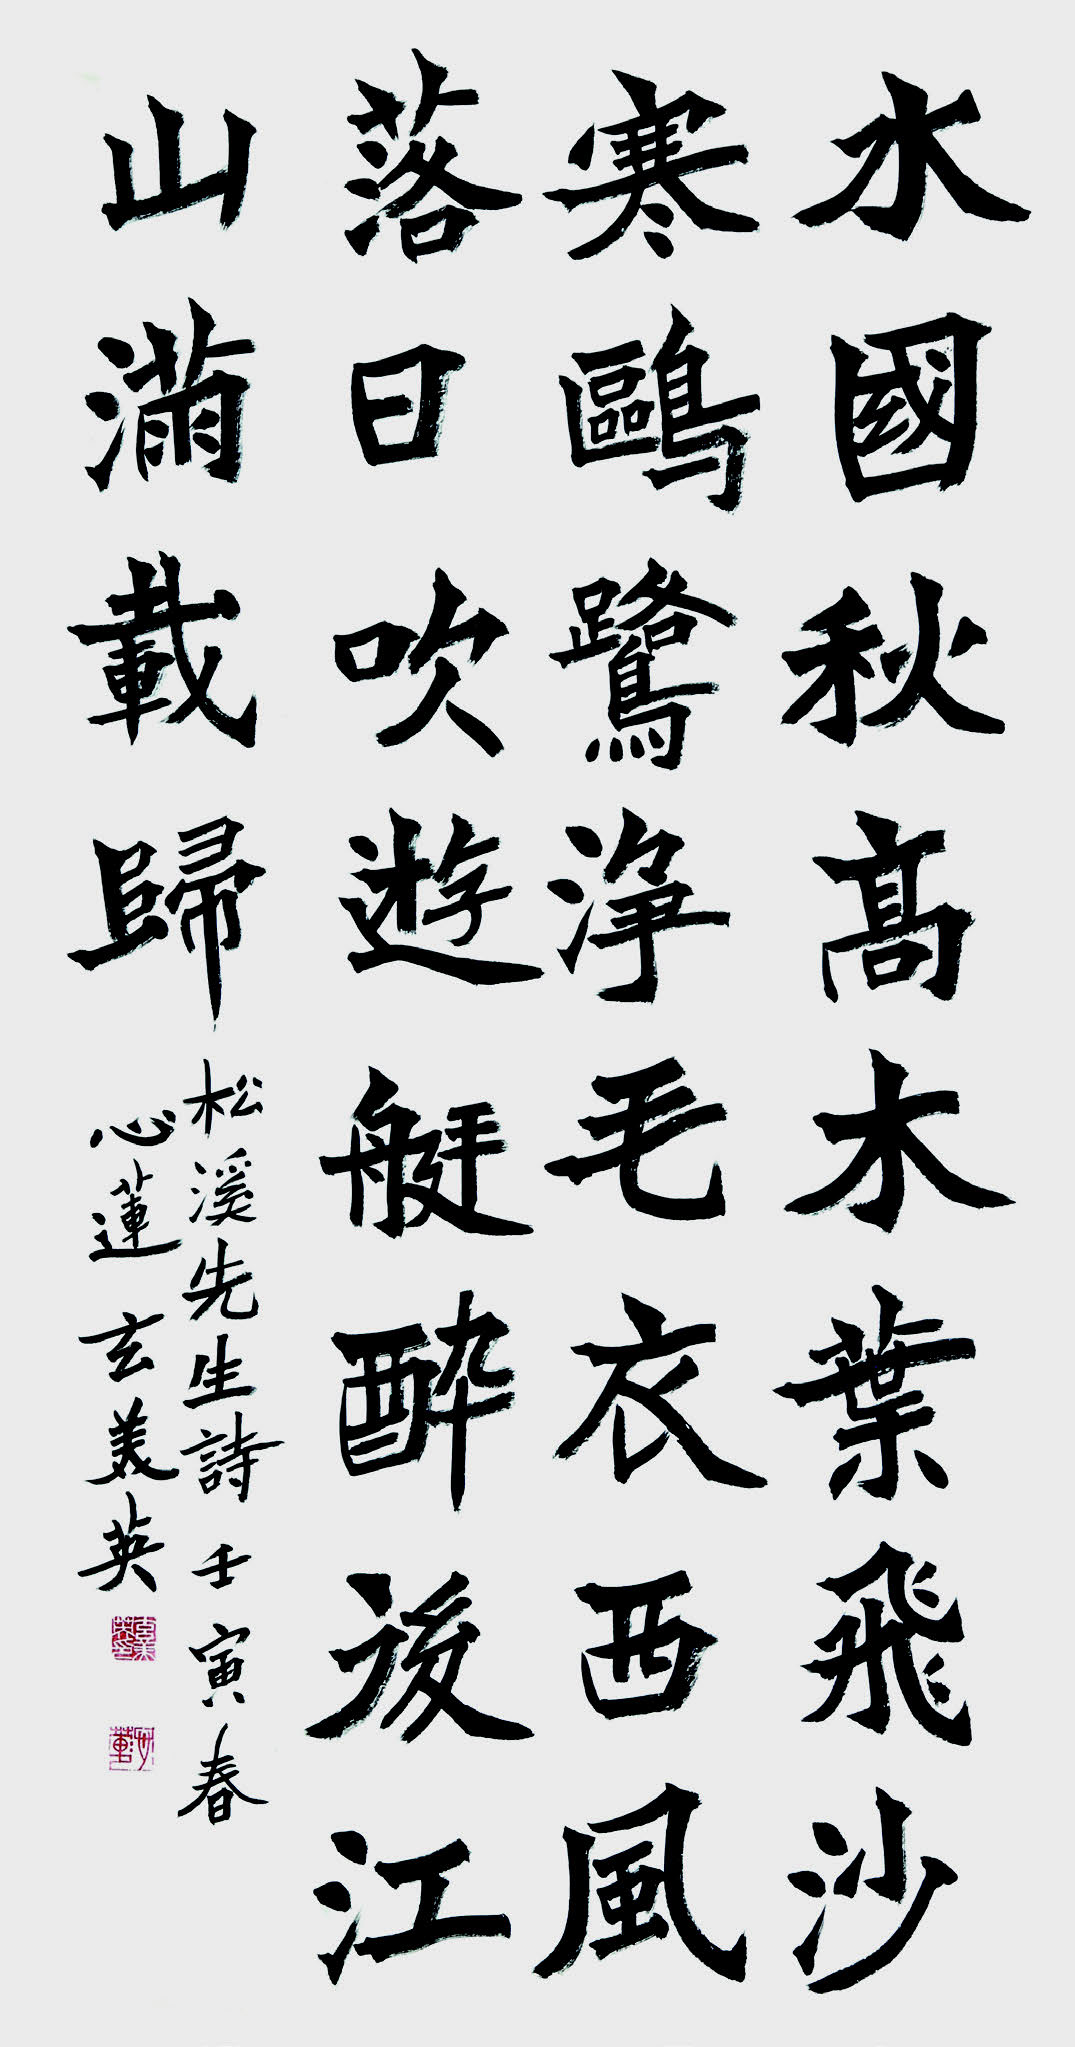 水國秋高木葉飛沙
寒鷗鷺淨毛衣西風
落日吹遊艇醉後江
山滿載歸
松溪先生詩 壬寅春
心蓮 玄美英